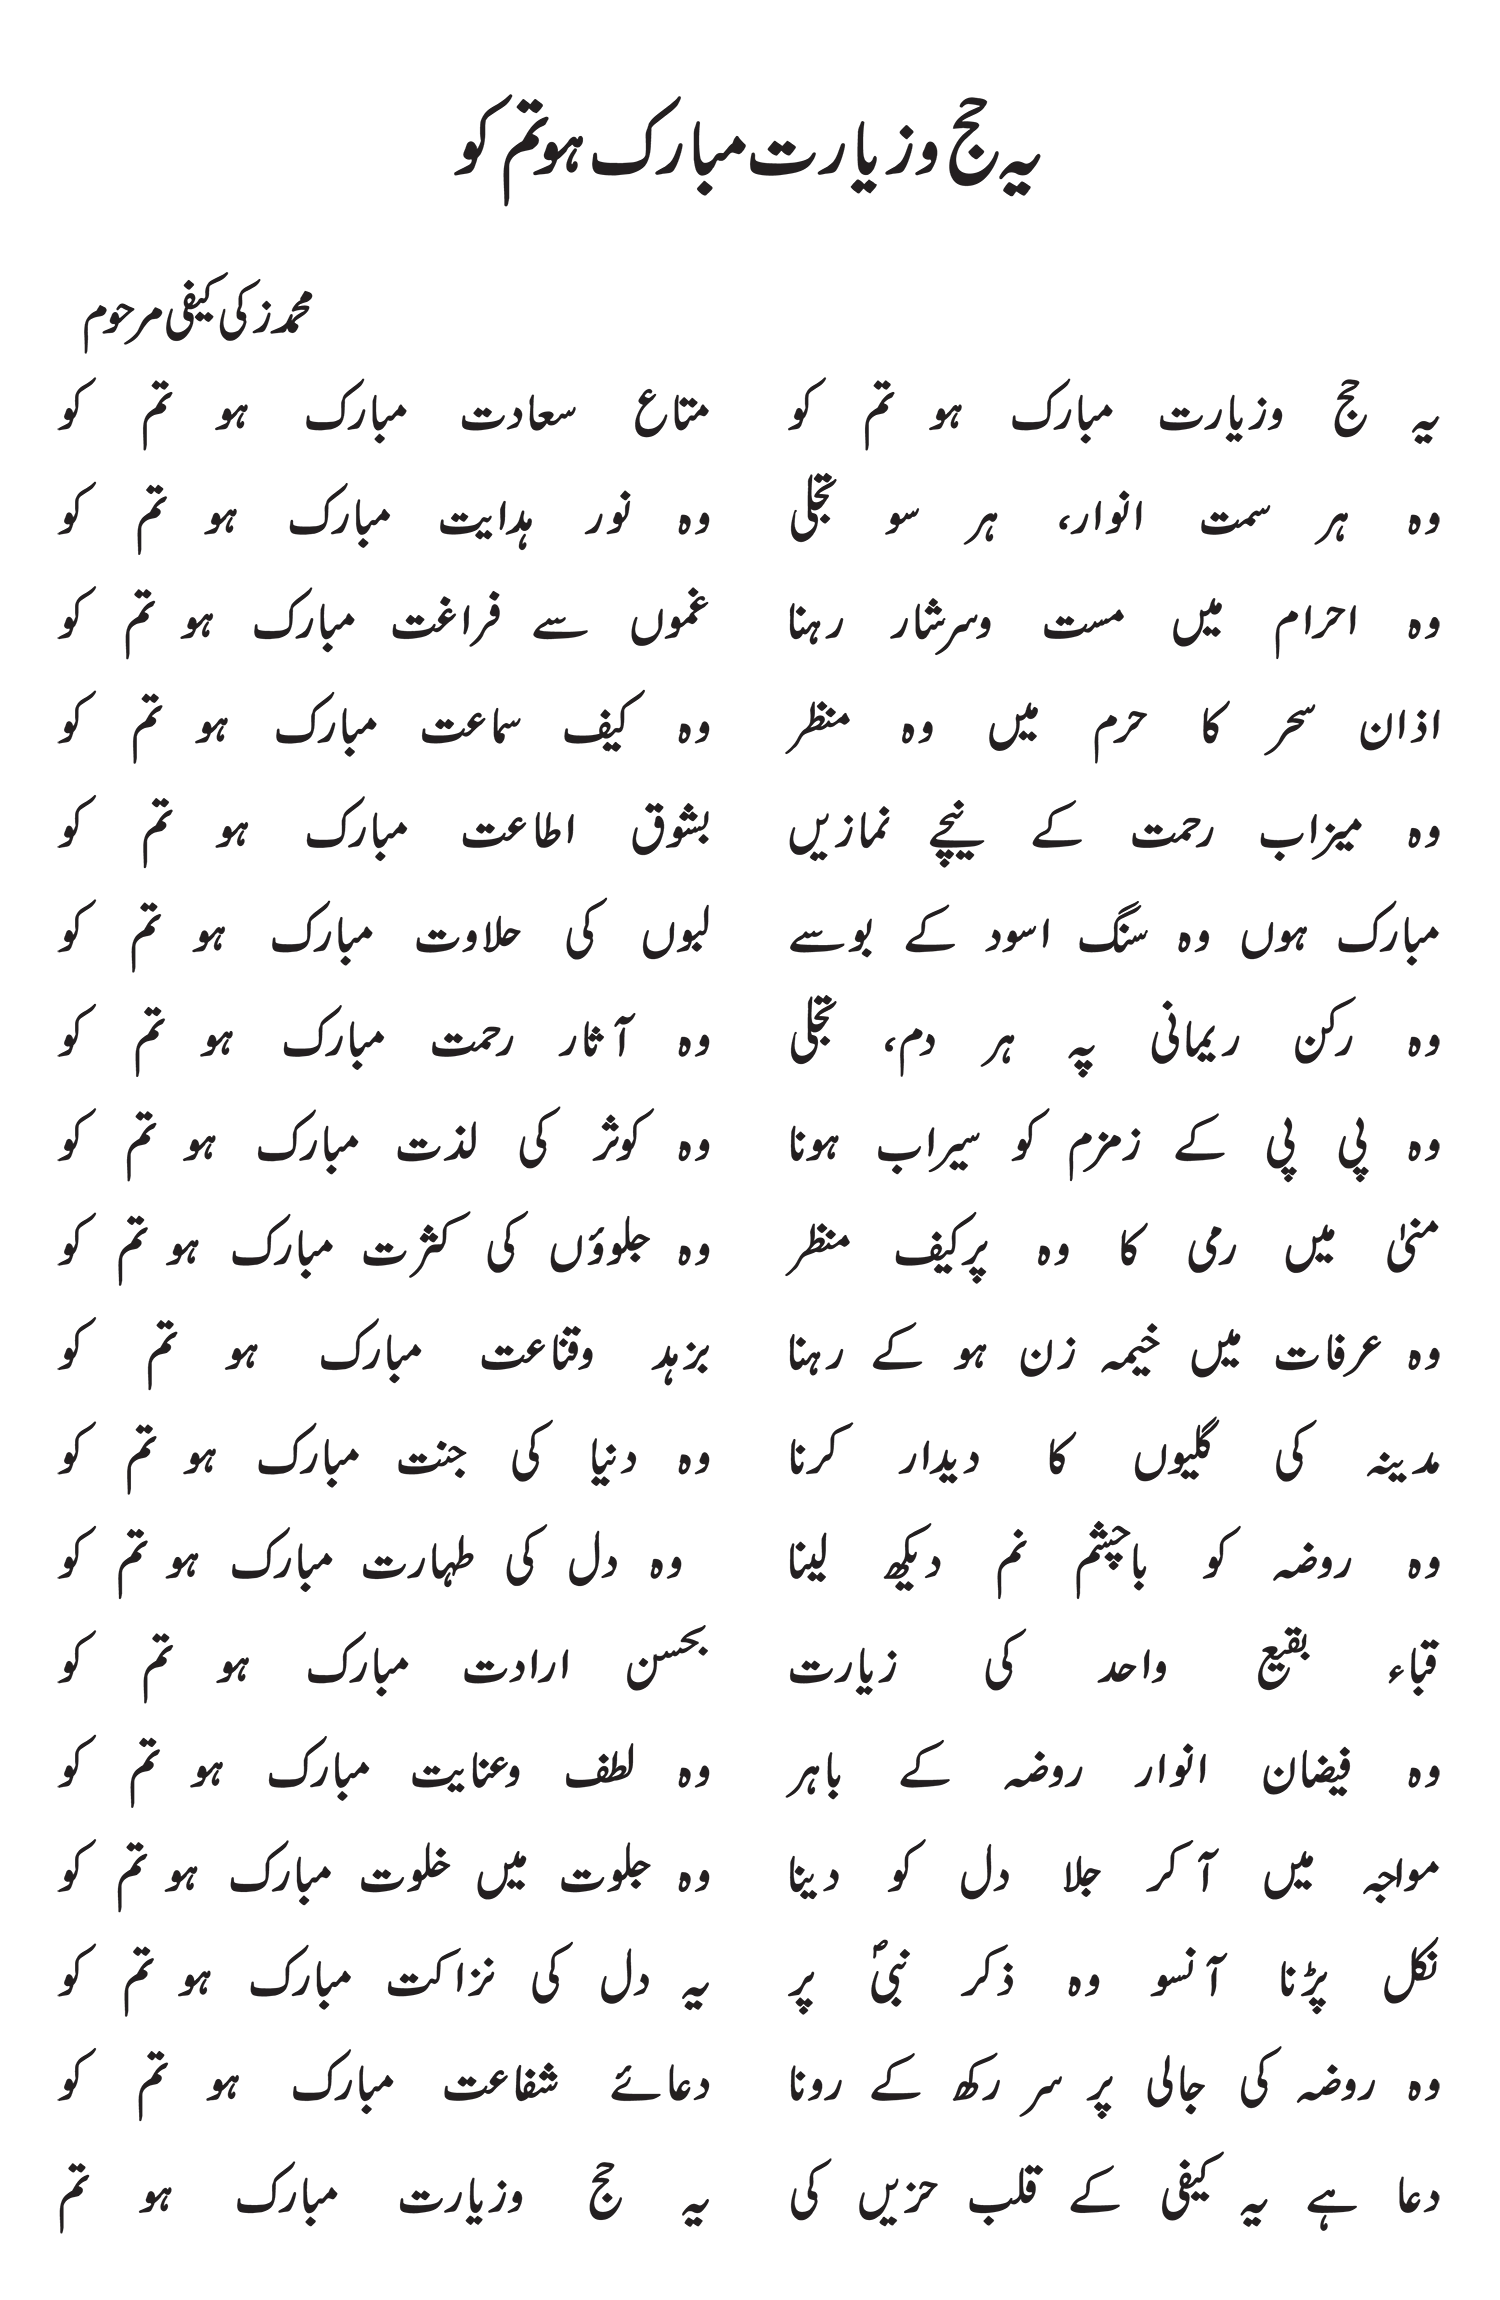 یہ حج وزیارت مبارک ہو تم کو
محمد زکی کیفی مرحوم
یہ حج وزیارت مبارک ہو تم کو متاع سعادت مبارک ہو تم کو
وہ ہر سمت انوار، ہر سو تجلی وہ نور ہدایت مبارک ہو تم کو
وہ احرام میں مست وسرشار رہنا غموں سے فراغت مبارک ہو تم کو
اذان سحر کا حرم میں وہ منظر وہ کیف سماعت مبارک ہو تم کو
وہ میزاب رحمت کے نیچے نمازیں بشوق اطاعت مبارک ہو تم کو
مبارک ہوں وہ سنگ اسود کے بوسے لبوں کی حلاوت مبارک ہو تم کو
وہ رکن ریمانی پہ ہر دم، تجلی وہ آثار رحمت مبارک ہو تم کو
وہ پی پی کے زمزم کو سیراب ہونا وہ کوثر کی لذت مبارک ہو تم کو
منیٰ میں رمی کا وہ پرکیف منظر وہ جلوؤں کی کثرت مبارک ہو تم کو
وہ عرفات میں خیمہ زن ہو کے رہنا بزہد وقناعت مبارک ہو تم کو
مدینہ کی گلیوں کا دیدار کرنا وہ دنیا کی جنت مبارک ہو تم کو
وہ روضہ کو باچشم نم دیکھ لینا وہ دل کی طہارت مبارک ہو تم کو
قباء بقیع واحد کی زیارت بحسن ارادت مبارک ہو تم کو
وہ فیضان انوار روضہ کے باہر وہ لطف وعنایت مبارک ہو تم کو
مواجہ میں آکر جلا دل کو دینا وہ جلوت میں خلوت مبارک ہو تم کو
نکل پڑنا آنسو وہ ذکر نبیؐ پر یہ دل کی نزاکت مبارک ہو تم کو
وہ روضہ کی جالی پر سر رکھ کے رونا دعائے شفاعت مبارک ہو تم کو
دعا ہے یہ کیفی کے قلب حزیں کی یہ حج وزیارت مبارک ہو تم